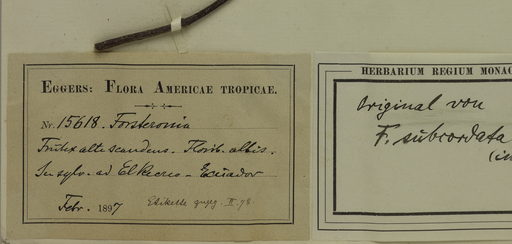 EGGERS: FLORA AMERICAE TROPICAE.
Nr. 15618. Forsteronia
Frutex alte scandens. Florib. albis.
In sylv. ad El Recreo - Ecuador
Febr. 1897
Etikette II. 98
HERBARIUM REGIUM MONAC
Original von
F. subcordata
(in